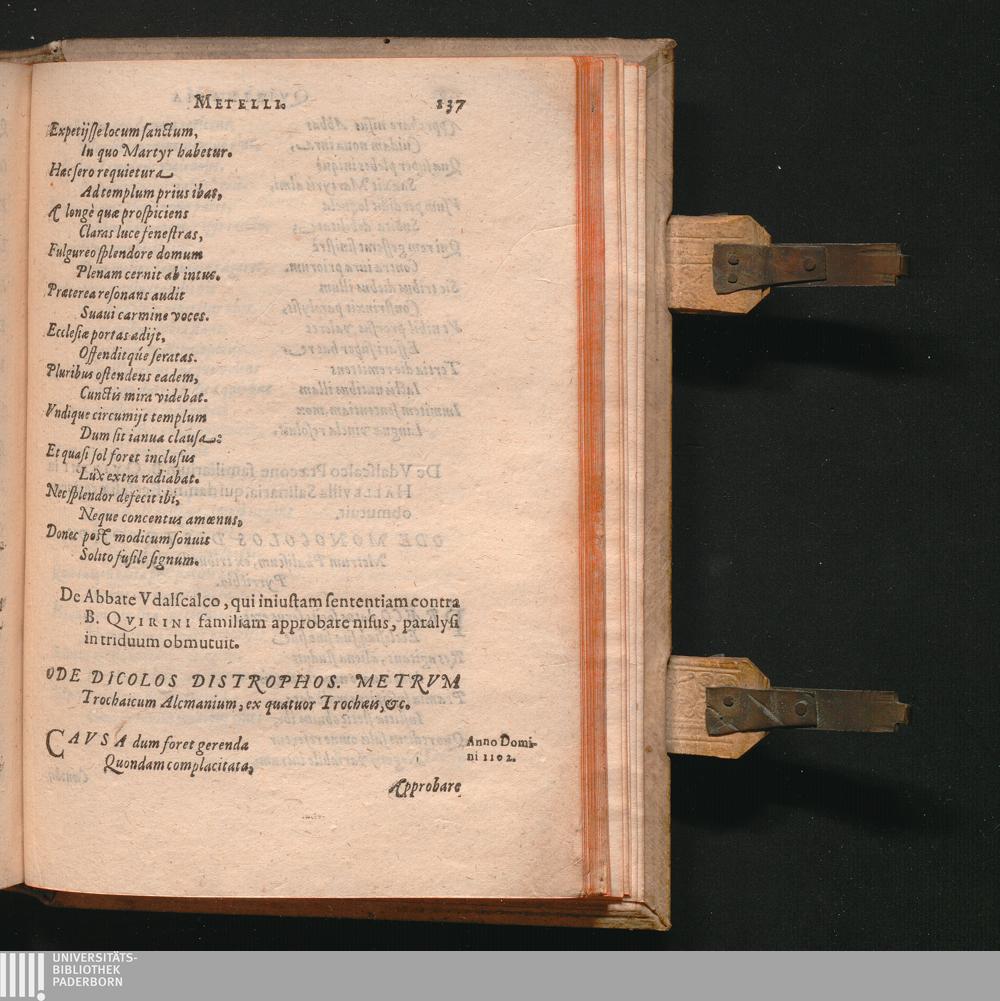 METELLI. 137
Expetijsse locum sanctum,
In quo Martyr habetur.
Hac sero requietura
Ad templum prius ibat,
A longè quæ prospiciens
Claras luce fenestras,
Fulgureo splendore domum
Plenam cernit ab intus.
Præterea resonans audit
Suaui carmine voces.
Ecclesiæ portas adijt,
Offenditqúe seratas.
Pluribus ostendens eadem,
Cunctis mira videbat.
Vndique circumijt templum
Dum sit ianua clausa:
Et quasi sol foret inclusus
Lux extra radiabat.
Nec splendor defecit ibi,
Neque concentus amœnus,
Donec post modicum sonuit
Solito fusile signum.
De Abbate Vdalscalco, qui iniustam sententiam contra
B. QVIRINI familiam approbare nisus, paralysi
in triduum obmutuit.
ODE DICOLOS DISTROPHOS. METRVM
Trochaicum Alcmanium, ex quatuor Trochæis, &c.
CAVSA dum foret gerenda
Quondam complacitata,
Anno Domi-
ni 1102.
Approbare
UNIVERSITÄTS-
BIBLIOTHEK
PADERBORN